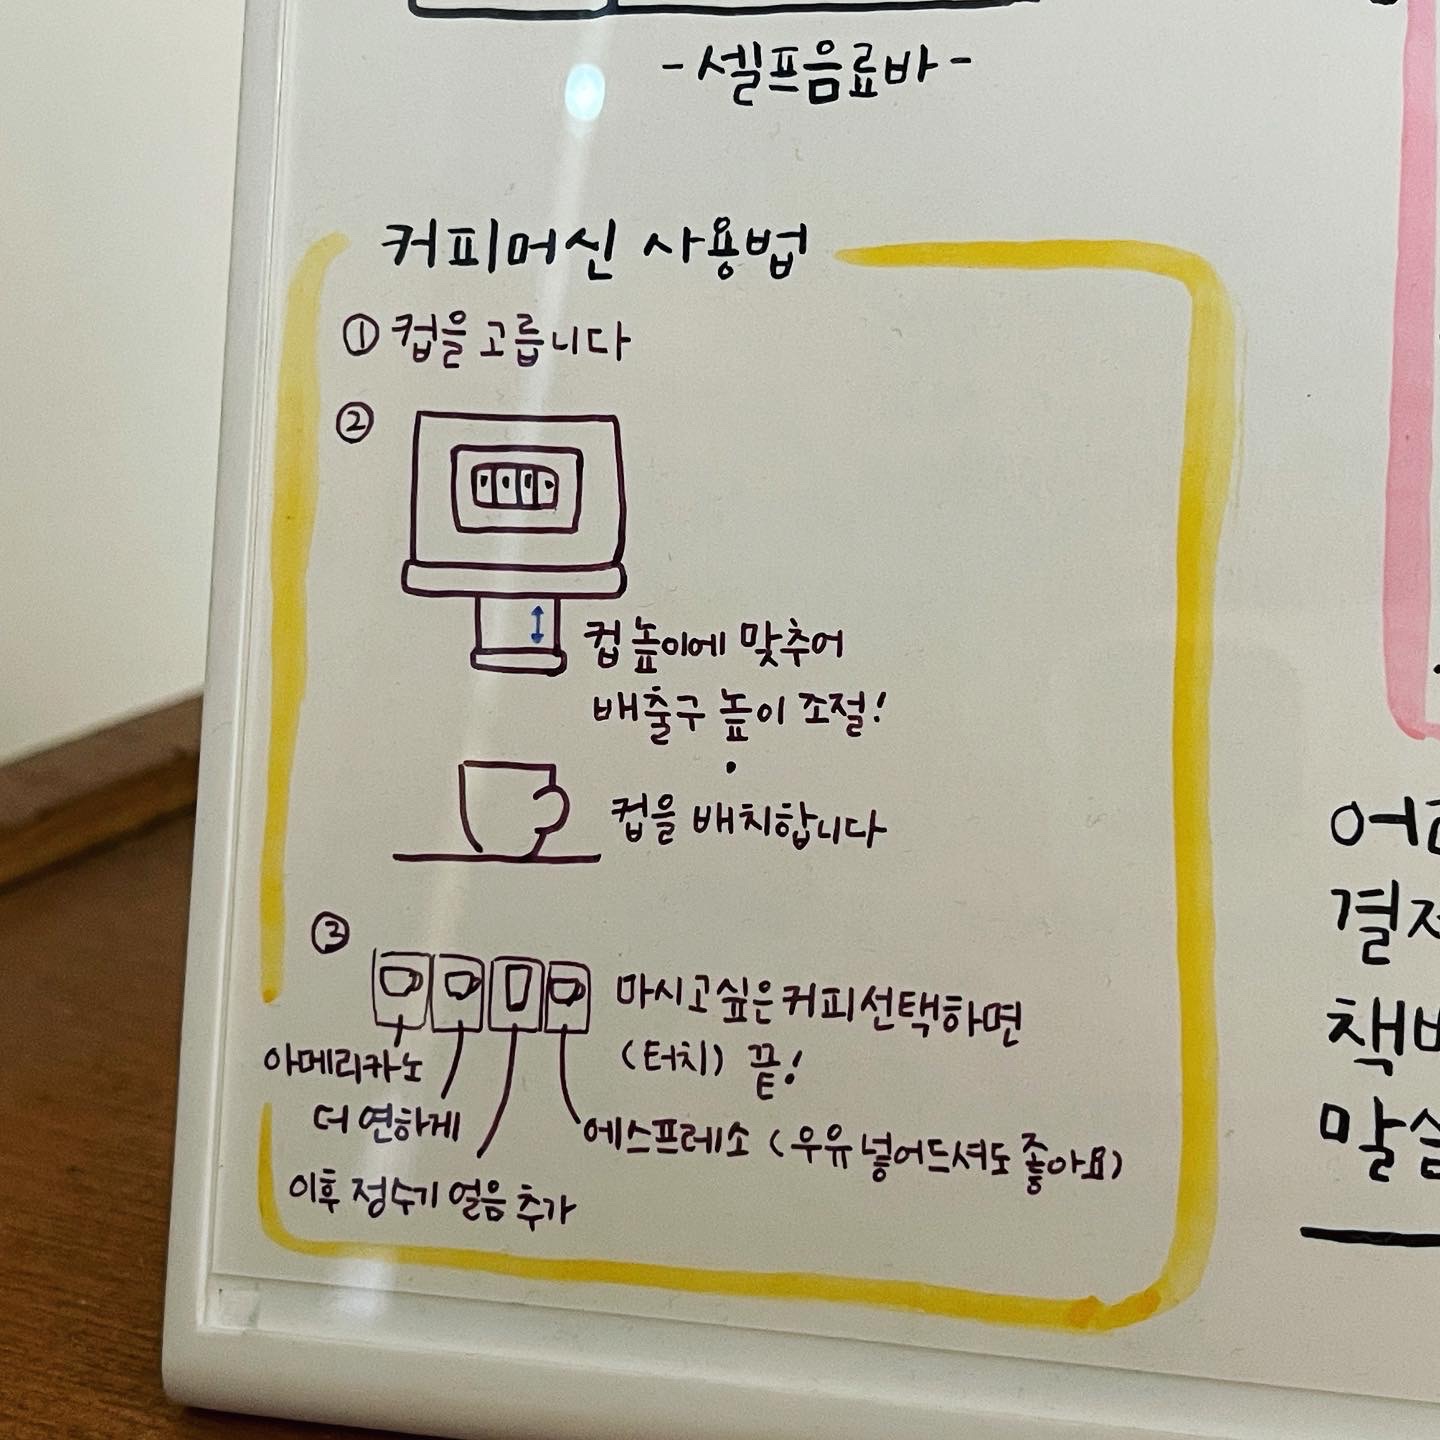 -셀프음료바-
커피머신 사용법
① 컵을 고릅니다
②
컵 높이에 맞추어
배출구 높이 조절!
컵을 배치합니다
③
마시고싶은커피선택하면
(터치) 끝!
아메리카노
더 연하게
에스프레소 (우유 넣어드셔도 좋아요)
이후 정수기 얼음 추가